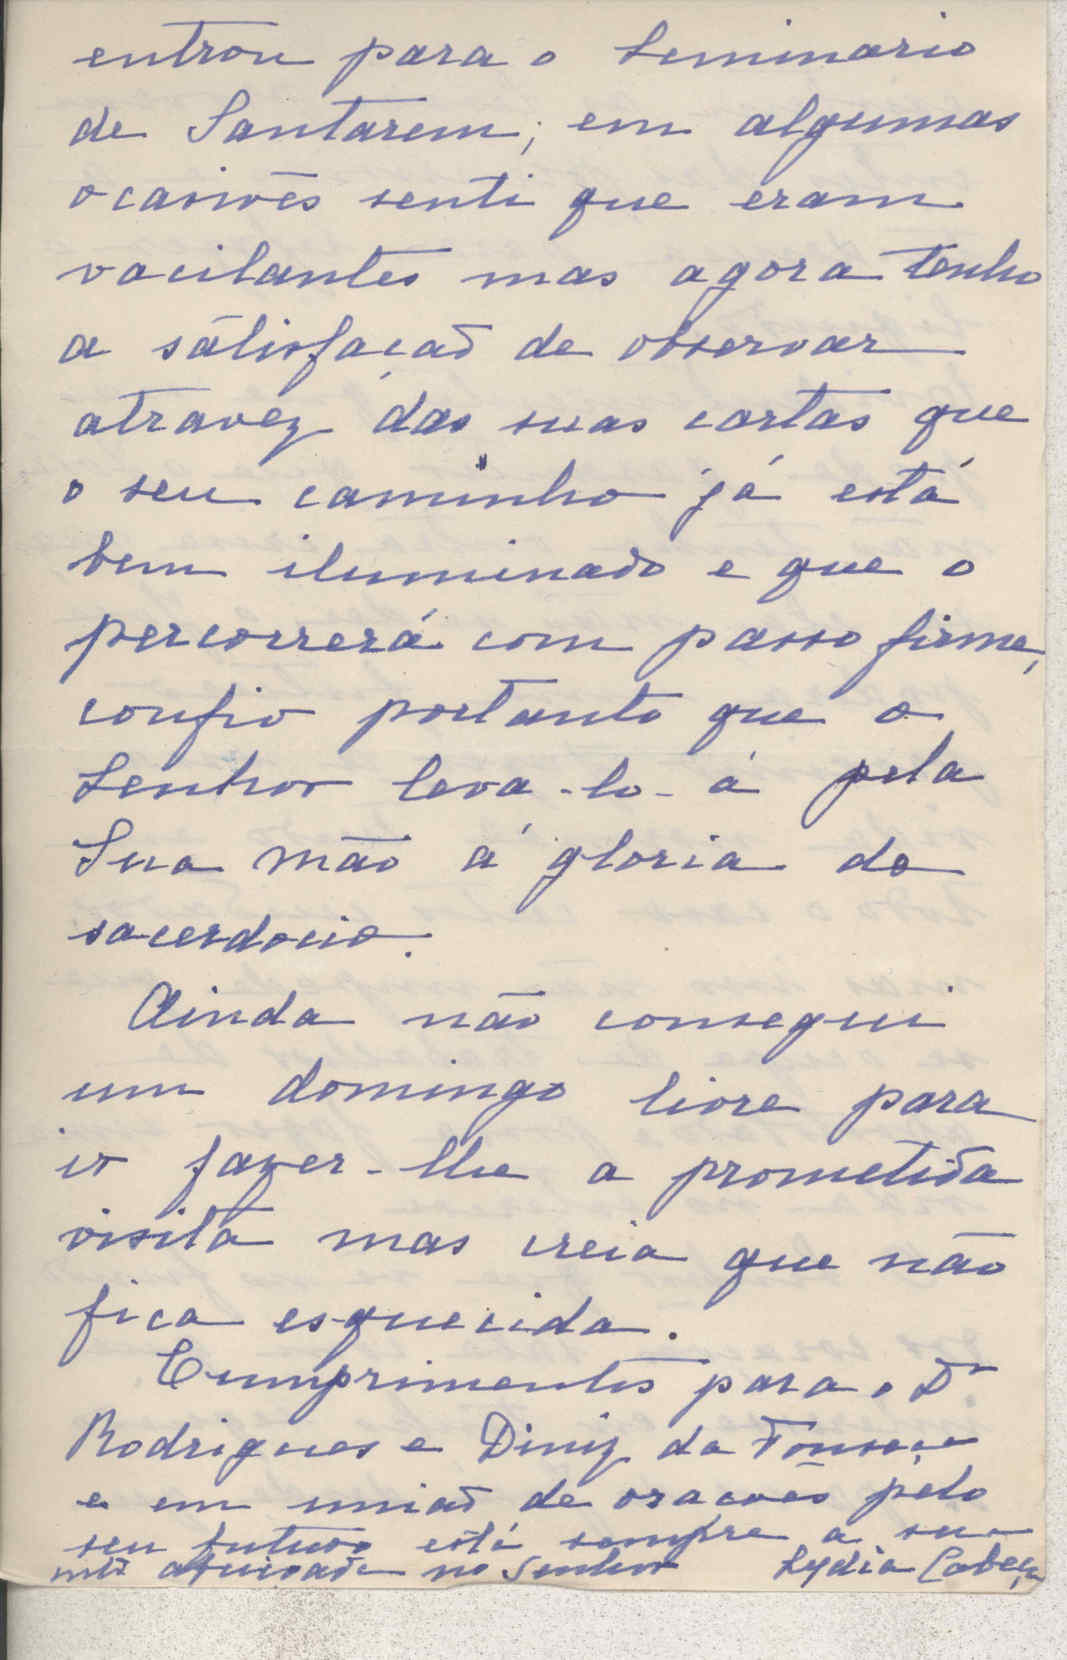 entrou para o Seminario
de Santarem; em algumas
ocasiões senti que eram
vacilantes mas agora tenho
a satisfação de observar
atravez das suas cartas que
o seu caminho já está
bem iluminado e que o
percorrerá com passo firme,
confio portanto que o
Senhor leva-lo-á pela
Sua mão á gloria do
sacerdocio.
Ainda não consegui
um domingo livre para
ir fazer-lhe a prometida
visita mas creia que não
fica esquecida.
Cumprimentos para o Dr
Rodrigues e Diniz da Fonseca
e em união de oracões pelo
seu futuro está sempre a sua
mtº no Senhor Lydia Cabeça